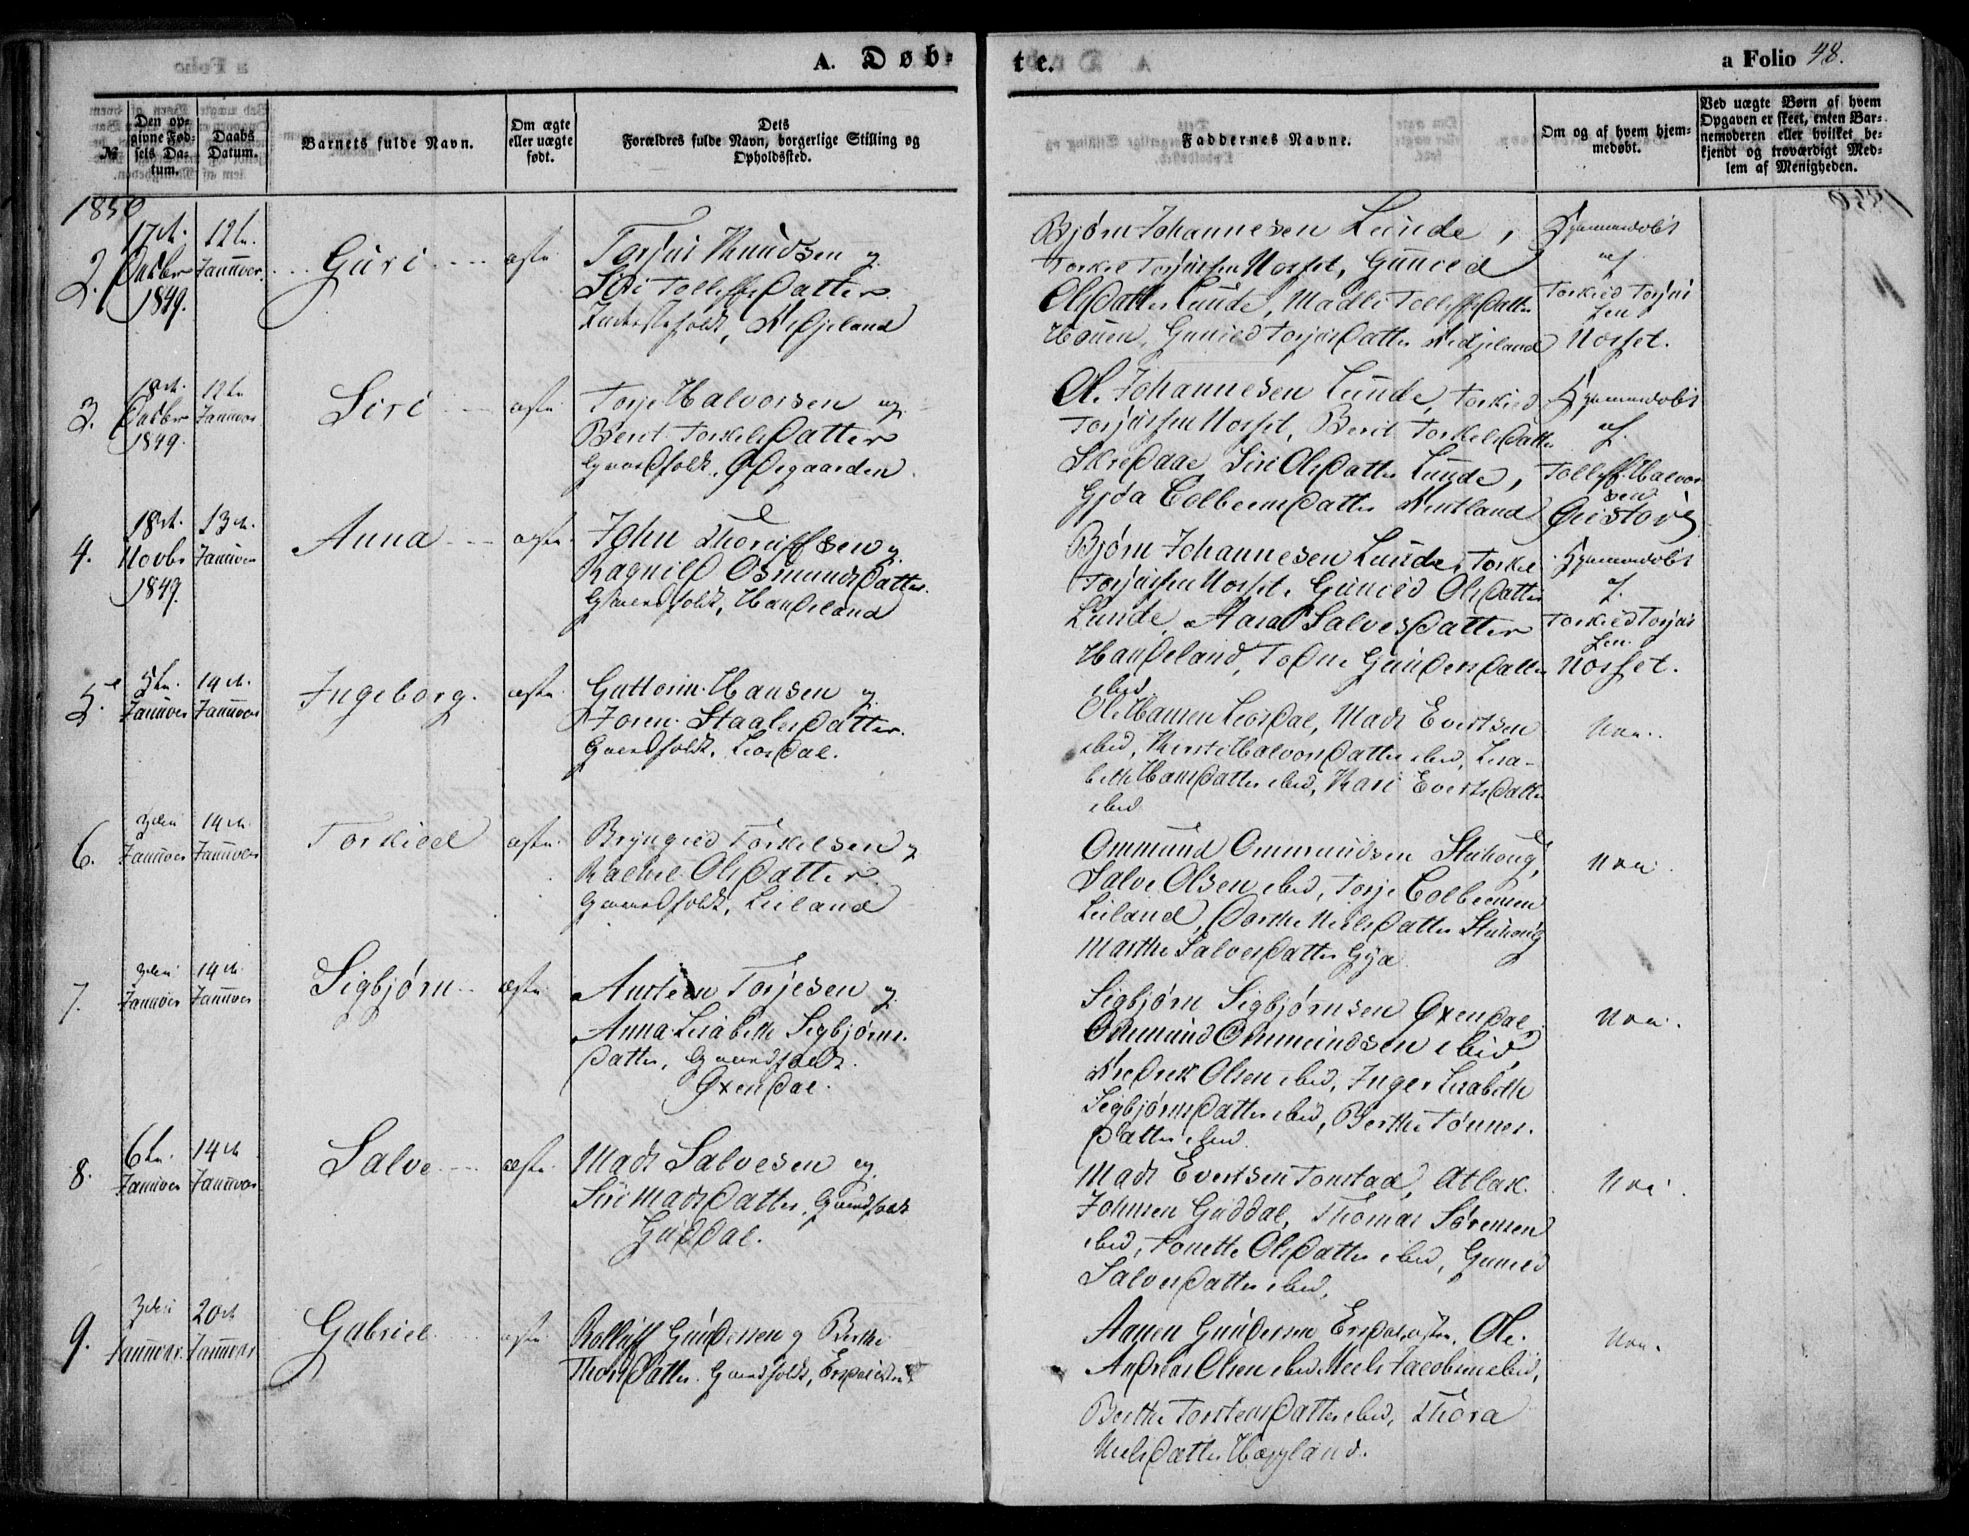 A. Døb-
te.
a Folio 48.
№
Den op-
givne Fød-
sels Da-
tum.
Daabs
Datum.
Barnets fulde Navn.
Om ægte
eller uægte
født.
Dets
Forældres fulde Navn, borgerlige Stilling og
Opholdssted.
Faddernes Navne.
Om og af hvem hjem-
medøbt.
Ved uægte Børn af hvem
Opgaven er skeet, enten Bar-
nemoderen eller hvilket be-
kjendt og troværdigt Med-
lem af Menigheden.
1850
2.
17de
Decbr
1849.
12te
Januver
Guri
ægte
Torjus Knudsen og
Siri Tollefsdatter
Bjørn Johannesen Lunde,
Torkel Torjussen Josset, Gunild
Olsdatter Lunde, Madli Tollefsdatter
Houen, Gunild Torjusdatter Kedjeland
Hjemmedøbt
af
Torkild Torjus
sen
3.
18de
Decbr
1849.
12te
Januver
Siri
ægte
Torje Halvorsen og
Berit Torkelsdatter
Gaardfolk. Ødegaarden
Ol. Johannesen Lunde, Torkild
Berit Torkelsdatter
Skredaae, Siri Olsdatter Lunde,
Gjøa Colbeensdatter
Hjemmedøbt
af
Tollef Halvor
sen
4.
18de
Novbr
1849.
13de
Januver
Anna
ægte
John Thorleffsen og
Ragnild Osmundsdatter.
Gaardfolk, Haugeland
Bjørn Johannesen Lunde, Torkel
Gunild Olsdatter
Lunde, Aasa Salvesdatter
Haugeland, Todne Gundersdatter
ibid
Hjemmedøbt
af
Torkild Torjus
sen
5.
5te
Januver
14de
Januver
Ingeborg.
ægte
Guttorm Hansen og
Joren Staalesdatter.
Gaardfolk, Liosdal.
Ole Hansen Liosdal, Mads Evertsen
ibid, Kirsti Halvorsdatter ibid, Lisa-
beth Hansdatter ibid, Kari Evertsdatter
ibid
Nei.
6.
3die
Januver
14de
Januver
Torkield
ægte
Bryngild Torkelsen og
Rachel Olsdatter.
Gaardfolk, Liland
Ommund Ommundsen Stuhoug,
Salve Olsen ibid, Torje Colbeensen
Liland, Dorthe Nielsdatter Stuhoug
Marthe Salvesdatter Gya
Nei.
7.
3die
Januver
14de
Januver
Sigbjørn
ægte
Austeen Torjesen og
Anna Lisabeth Sigbjørns-
datter, Gaardfolk.
Øxendal.
Sigbjørn Sigbjørnsen Øxendal,
Ommund Ommundsen ibid,
Fredrik Olsen ibid, Inger Lisabeth
Sigbjørnsdatter ibid, Berthe Tønnes-
datter ibid.
Nei.
8.
6te
Januver
14de
Januver
Salve
ægte
Mads Salvesen og
Siri Madsdatter, Gaardfolk
Guddal.
Mads Evertsen Tonstad, Atlak
Johnsen Guddal, Thomas Sørensen
ibid, Tonette Olsdatter ibid, Gunild
Salvesdatter ibid,
Nei.
9.
3die
Januver
20de
Januver
Gabriel
ægte
Rolleff Gundersen og Berthe
Thorsdatter. Gaardfolk,
Aanen Gundersen Ersdal, Ole
Andreas Olsen ibid, Niels Jacobsen ibid,
Berthe Torstensdatter ibid, Thora
Nielsdatter Hægland.
Nei.